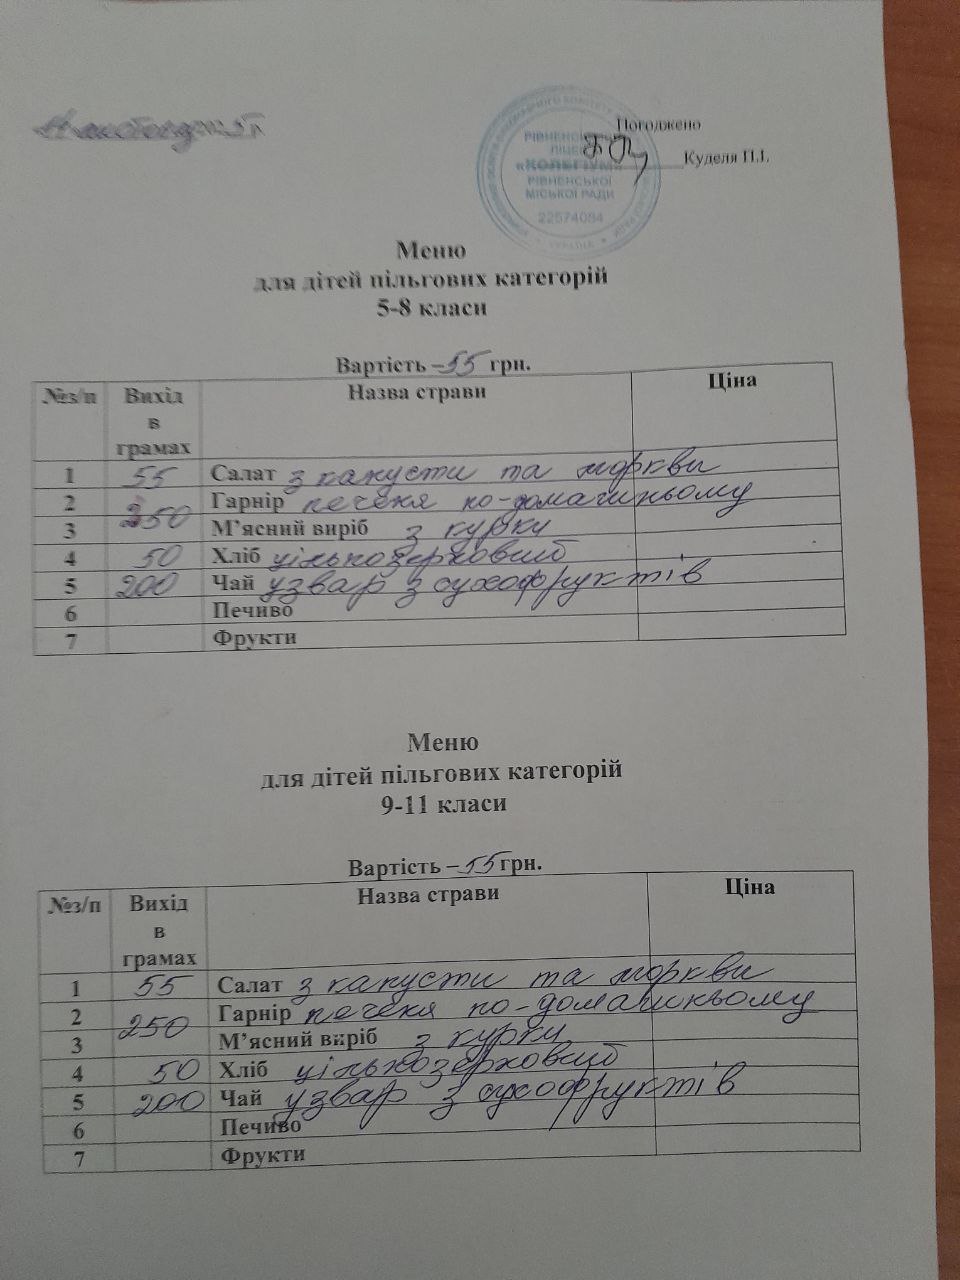 2025 р.
Погоджено
Куделя П.І.
РІВНЕНСЬКИЙ
ЛІЦЕЙ
«КОЛЕГІУМ»
РІВНЕНСЬКОЇ
МІСЬКОЇ РАДИ
22574084
УКРАЇНА
Меню
для дітей пільгових категорій
5-8 класи
Вартість – 55 грн.
№з/п Вихід в грамах Назва страви Ціна
1 55 Салат з капусти та моркви
2 Гарнір печеня по-домашньому
250
3 М’ясний виріб з курки
4 50 Хліб цільнозерновий
5 200 Чай узвар з сухофруктів
6 Печиво
7 Фрукти
Меню
для дітей пільгових категорій
9-11 класи
Вартість – 55 грн.
№з/п Вихід в грамах Назва страви Ціна
1 55 Салат з капусти та моркви
2 Гарнір печеня по-домашньому
250
3 М’ясний виріб з курки
4 50 Хліб цільнозерновий
5 200 Чай узвар з сухофруктів
6 Печиво
7 Фрукти